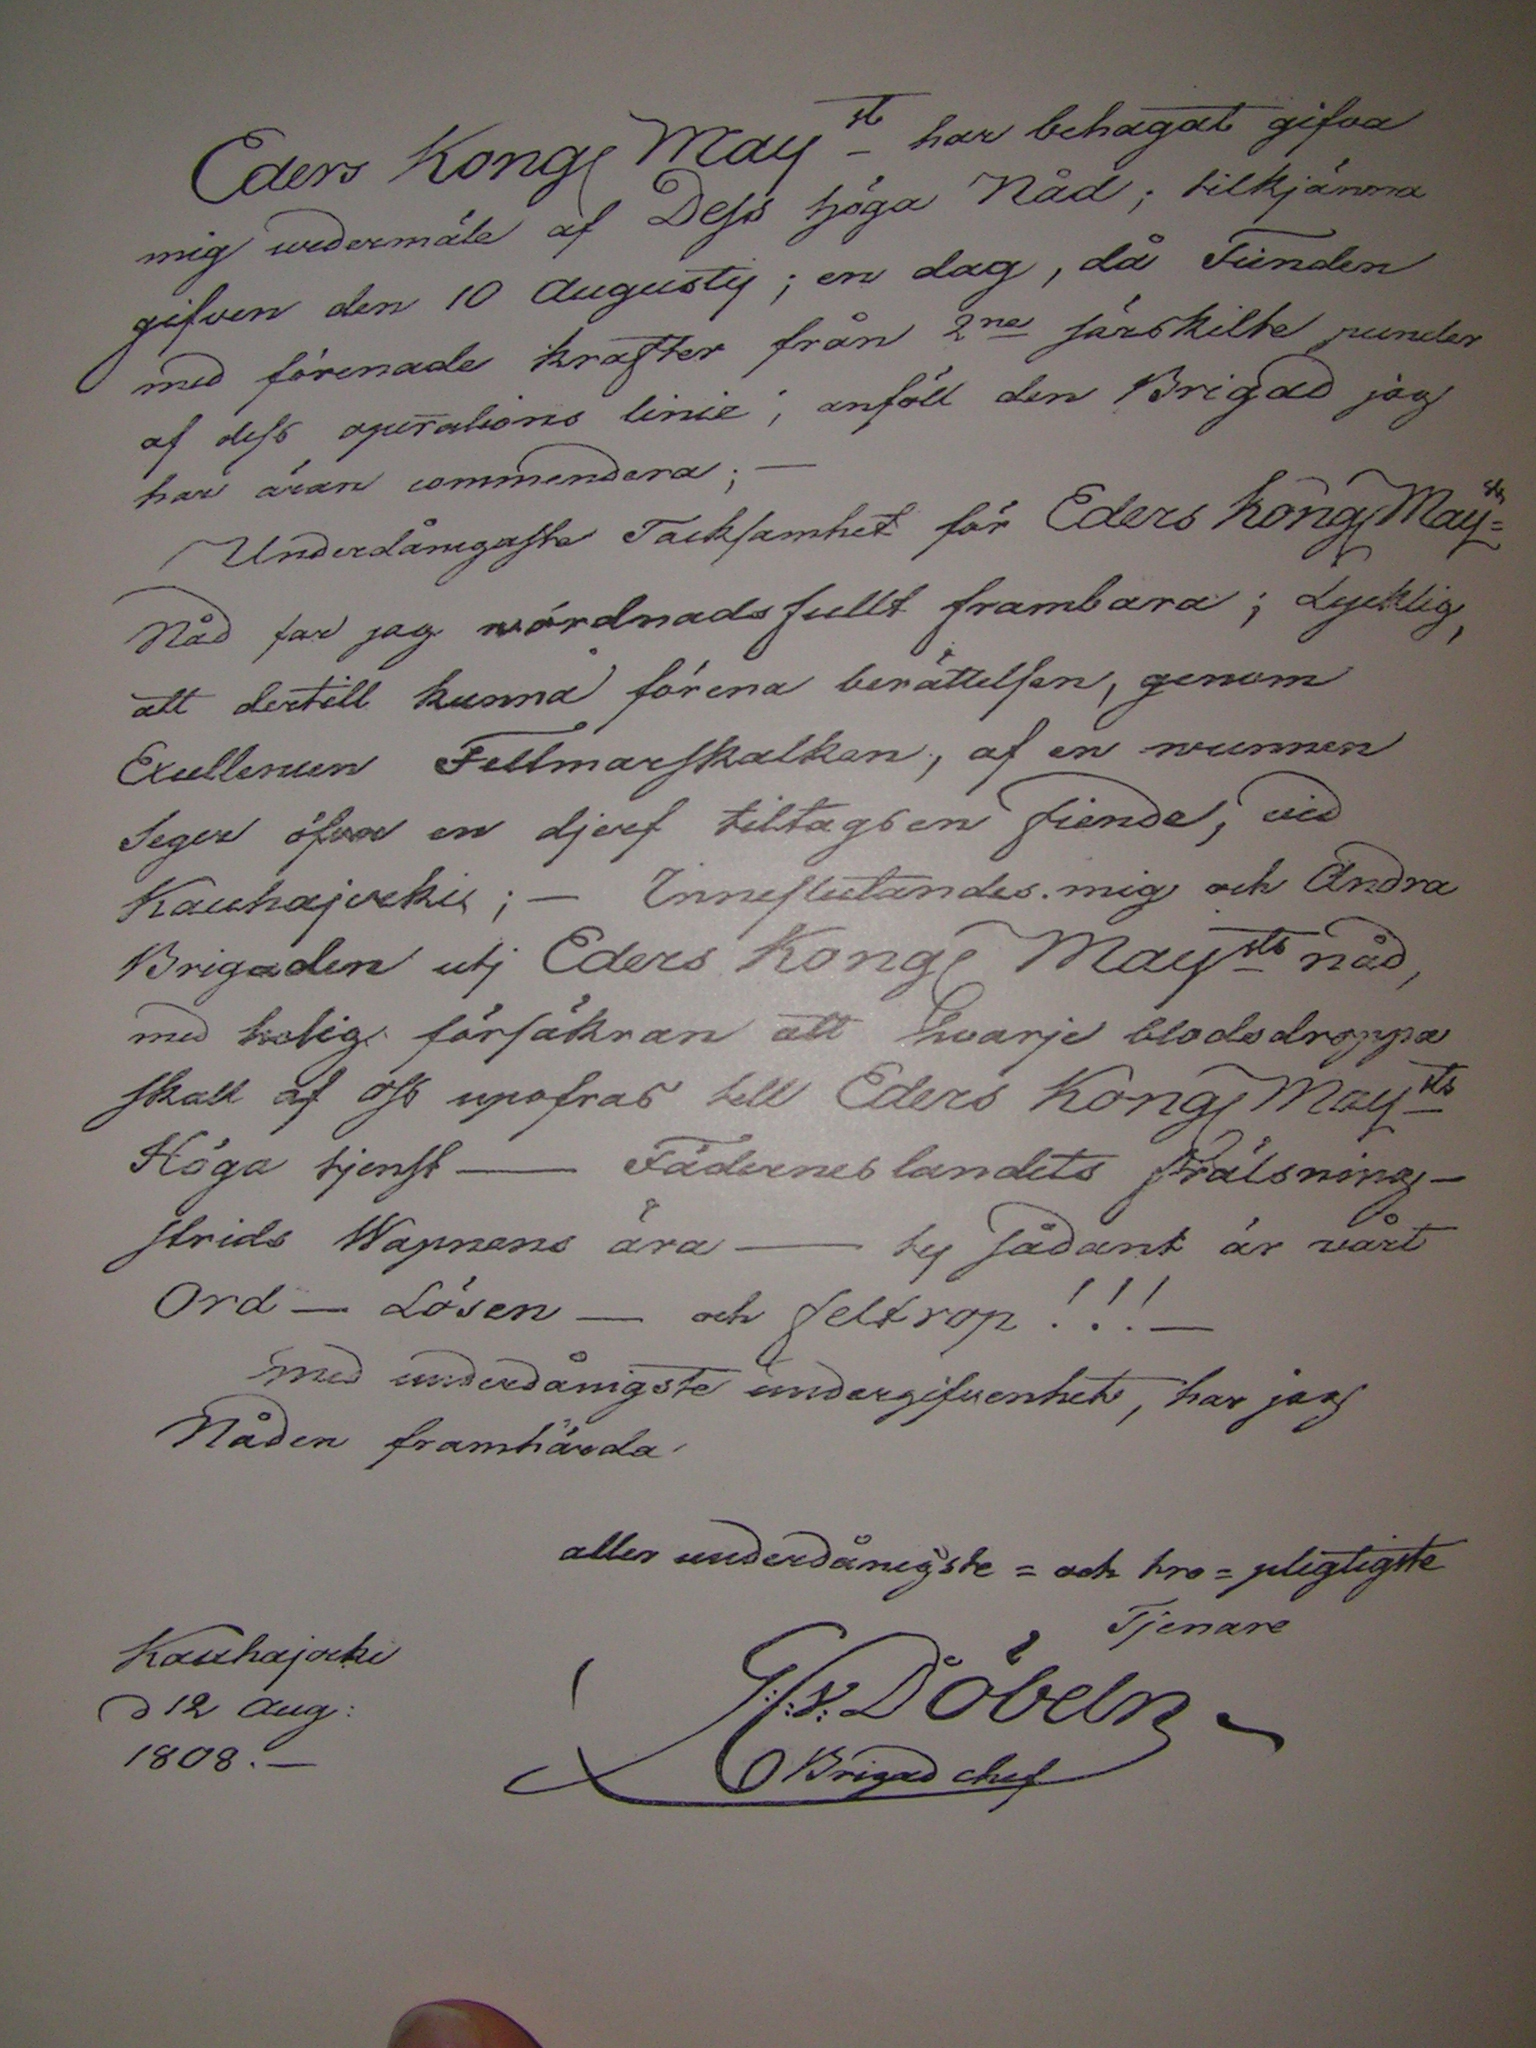 Eders Kongl May st har behagat gifva
mig wedermäle af Dess höga Nåd; tilkjänna
gifven den 10 Augusty; en dag, då Fienden
med förenade krafter från 2ne särskilte puncter
af dess operations linie; anföll den Brigad jag
har äran commendera; —
Underdånigaste Tacksamhet för Eders Kongl May sts
Nåd far jag wördnadsfullt frambara; Lycklig,
att dertill kunna förena berättelsen, genom
Excellencen Feltmarskalken, af en wunnen
Seger öfver en djerf tiltagsen fiende, vid
Kauhajocki; — Inneslutandes mig och Andra
Brigaden utj Eders Kongl May sts nåd,
med helig försäkran att hvarje blodsdroppa
skall af oss upofras till Eders Kongl May sts
Höga tjenst — Fäderneslandets frälsning —
strids Wapnens ära — ty sådant är vårt
Ord — Lösen — och feltrop!!! —
med underdånigste undergifvenhet, har jag
Nåden framhärda
aller underdånigste = och tro = pligtigste
Tjenare
Kauhajocki
d 12 Aug:
1808. —
G: C: v: Döbeln
Brigad chef